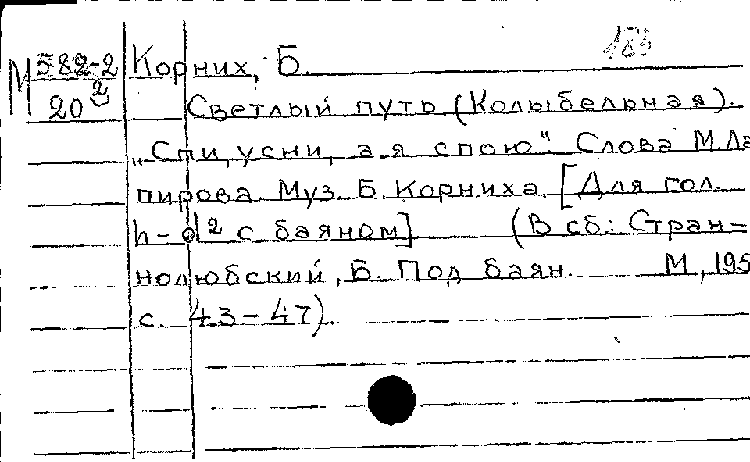 М 582-2
20
Корних, Б.
Светлый путь (Колыбельная).
„Спи, усни, а я спою". Слова М. Ла
пирова Муз. Б. Корниха. [Для гол.
h – d² с баяном] (В сб.: Стран=
нолюбский, Б. Под баян. М., 195
с. 43-47).